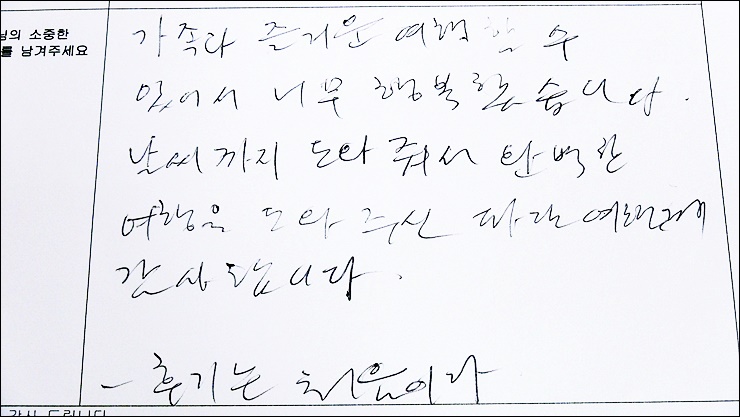 님의 소중한
를 남겨주세요
가족과 즐거운 여행할 수
있어서 너무 행복했습니다.
날씨까지 도와줘서 완벽한
여행을 도와주신 파란여행께
감사합니다.
- 후기는 처음이라
감사 드립니다